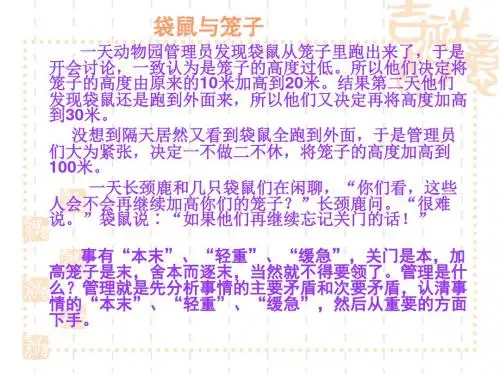 袋鼠与笼子
一天动物园管理员发现袋鼠从笼子里跑出来了，于是
开会讨论，一致认为是笼子的高度过低。所以他们决定将
笼子的高度由原来的10米加高到20米。结果第二天他们
发现袋鼠还是跑到外面来，所以他们又决定再将高度加高
到30米。
没想到隔天居然又看到袋鼠全跑到外面，于是管理员
们大为紧张，决定一不做二不休，将笼子的高度加高到
100米。
一天长颈鹿和几只袋鼠们在闲聊，“你们看，这些
人会不会再继续加高你们的笼子？”长颈鹿问。“很难
说。”袋鼠说∶“如果他们再继续忘记关门的话！”
事有“本末”、“轻重”、“缓急”，关门是本，加
高笼子是末，舍本而逐末，当然就不得要领了。管理是什
么？管理就是先分析事情的主要矛盾和次要矛盾，认清事
情的“本末”、“轻重”、“缓急”，然后从重要的方面
下手。